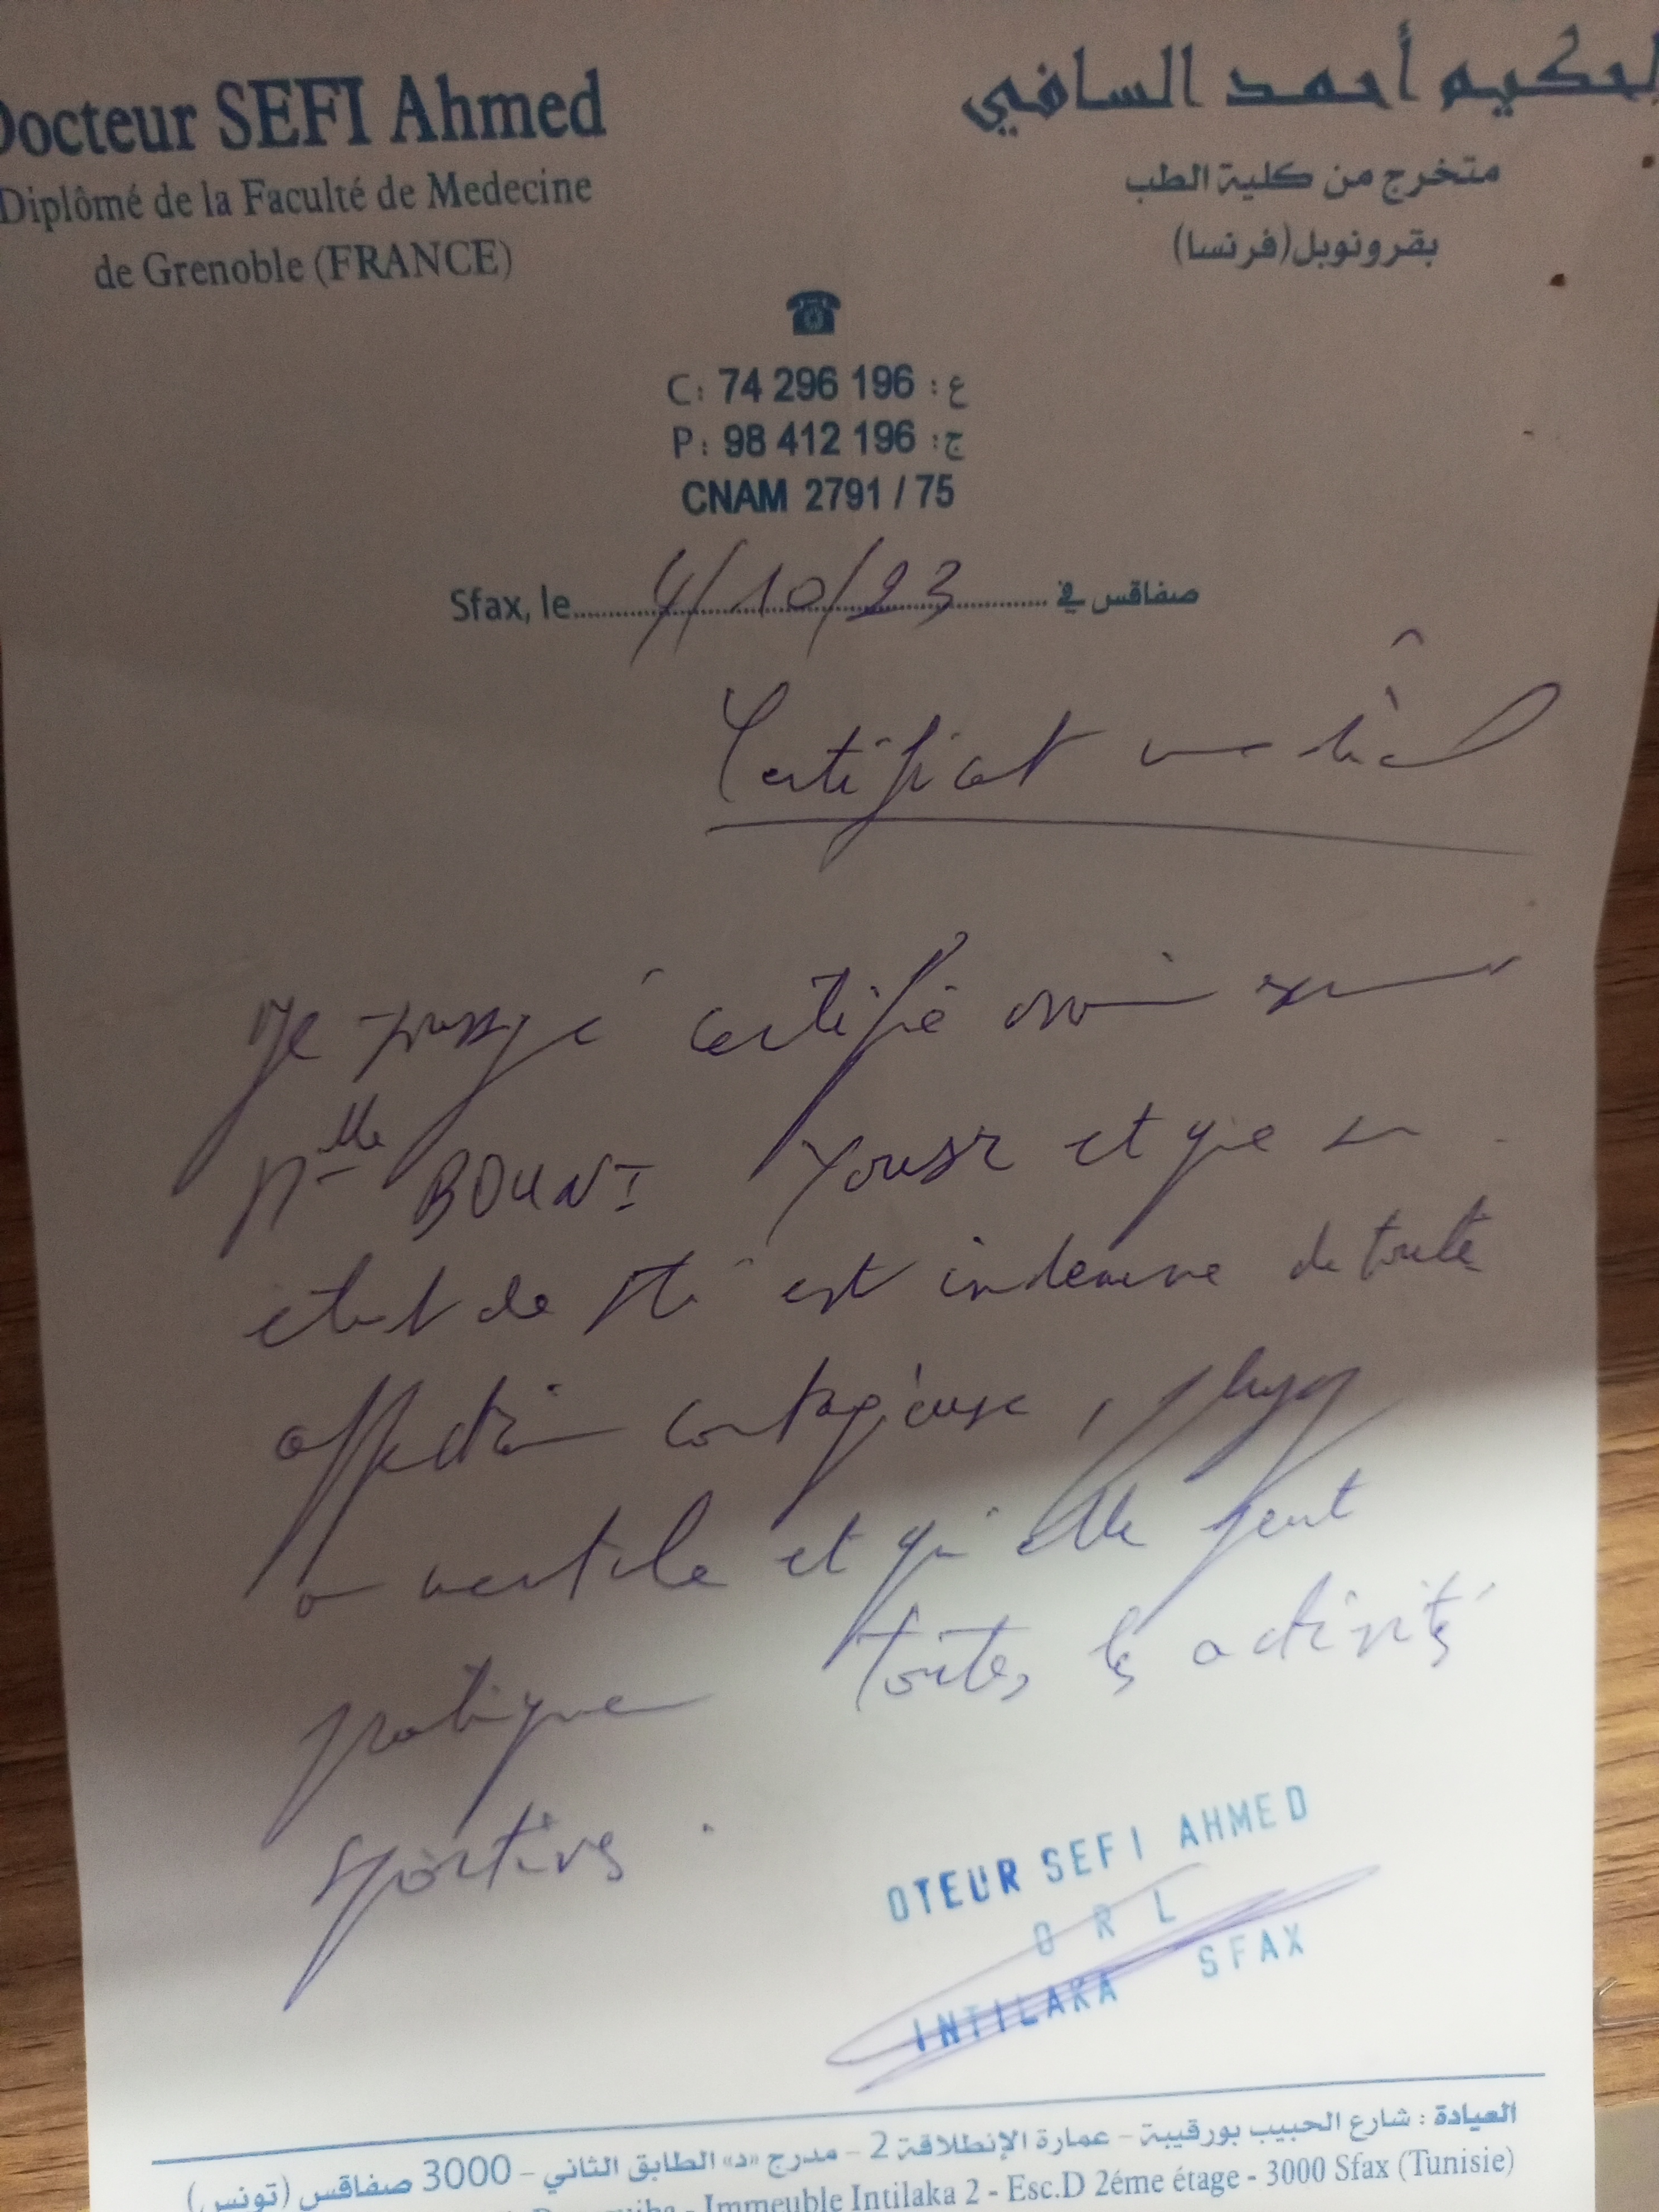 Docteur SEFI Ahmed
Diplômé de la Faculté de Medecine
de Grenoble (FRANCE)
لحكيم أحمد السافي
متخرج من كلية الطب
بقرونوبل (فرنسا)
C: 74 296 196 : ع
P: 98 412 196 : ج
CNAM 2791 / 75
Sfax, le 4/10/23 صفاقس في
Certificat médical
Je certifie avoir
Mlle BOUNI Yousr et que
état de est indemne de toute
affection contagieuse,
ou mentale et qu'elle peut
pratiquer toutes les activités
sportives.
OTEUR SEFI AHMED
O R L
INTILAKA SFAX
العيادة : شارع الحبيب بورقيبة - عمارة الإنطلاقة 2 - مدرج «د» الطابق الثاني - 3000 صفاقس (تونس)
- Immeuble Intilaka 2 - Esc.D 2éme étage - 3000 Sfax (Tunisie)